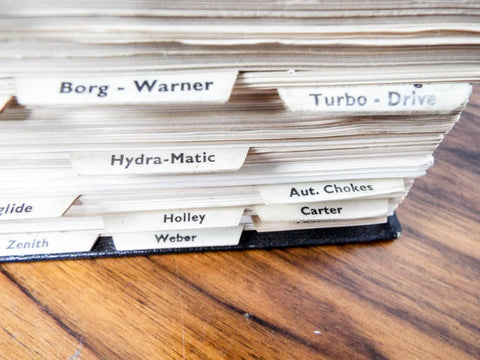 Borg - Warner
Turbo - Drive
Hydra-Matic
Aut. Chokes
glide
Holley
Carter
Zenith
Weber